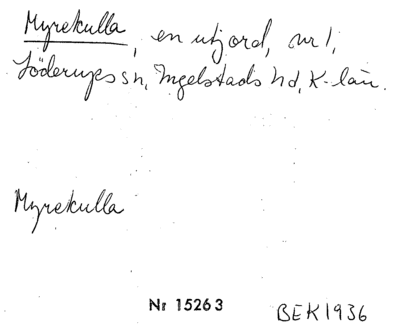 Myrekulla, en utjord, nr 1,
Löderups sn, Ingelstads hd, K-län.
Myrekulla
Nr 15263
BEK1936